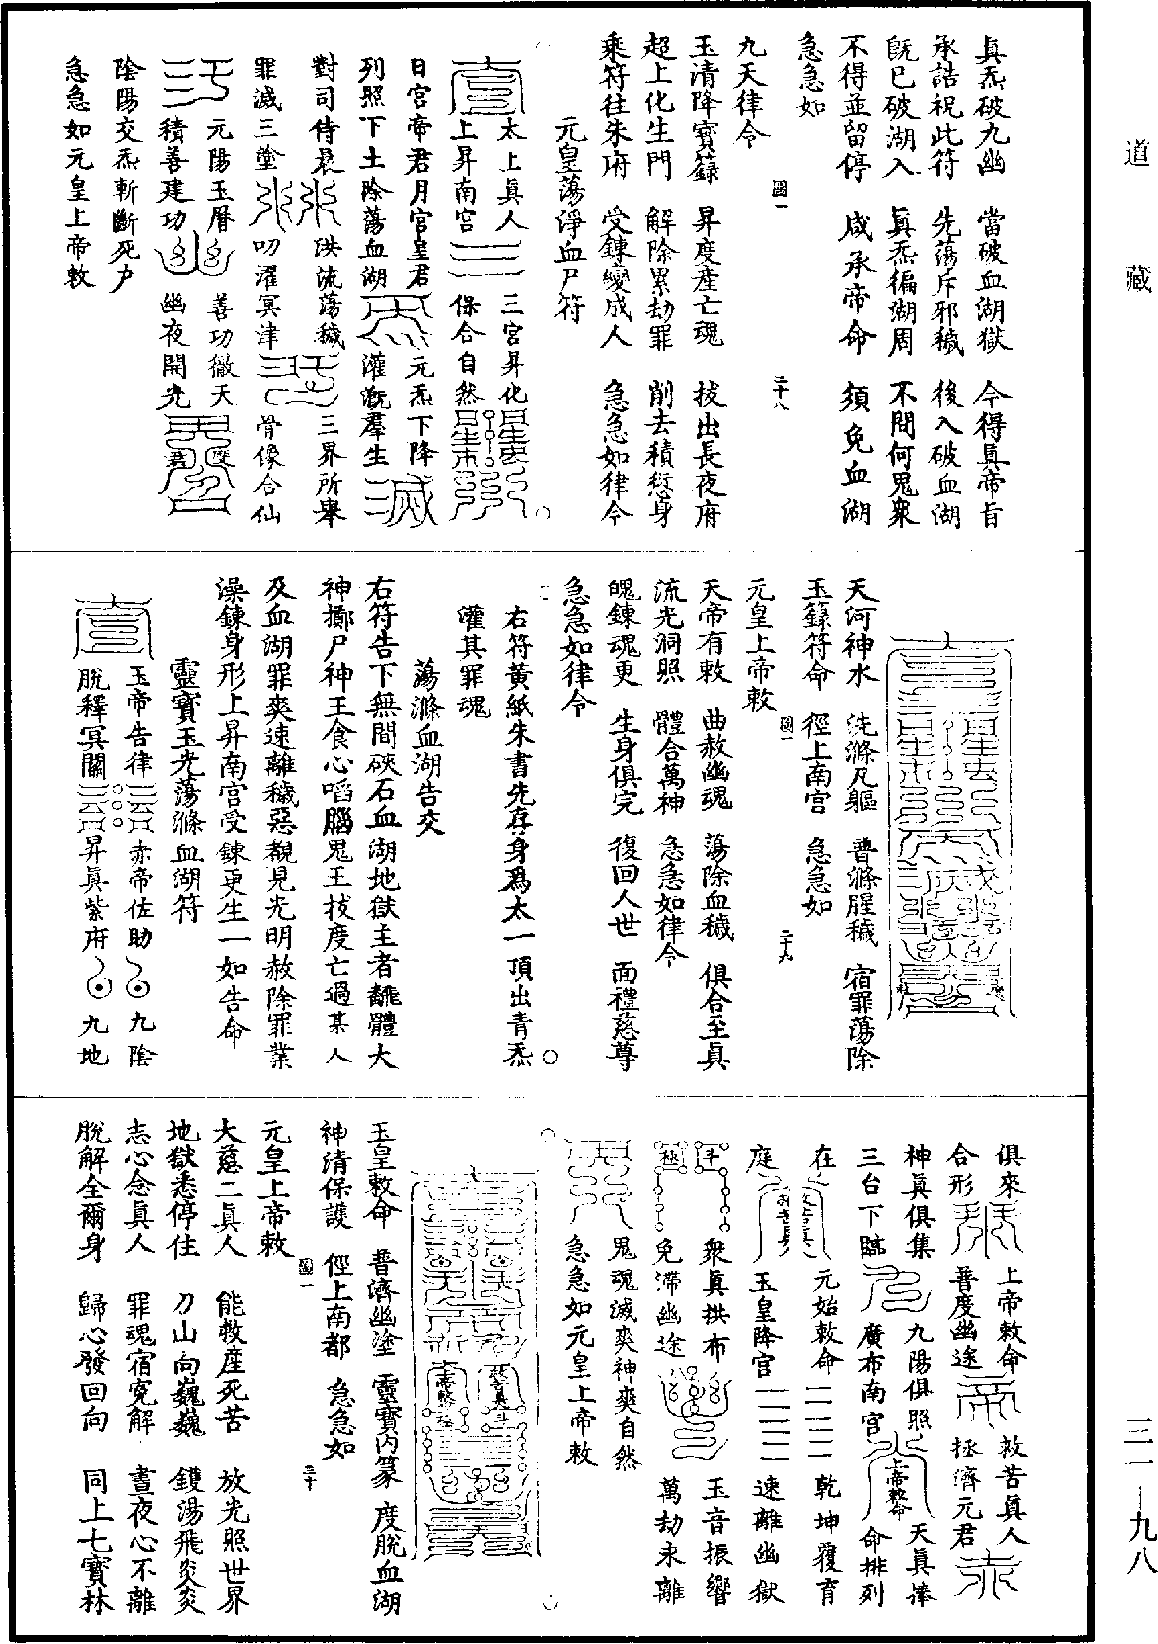 道藏
三一—九八
真炁破九幽 當破血湖獄 今得真帝旨
承誥祝此符 先蕩斥邪穢 後入破血湖
既已破湖入 真炁徧湖周 不問何鬼衆
不得並留停 咸承帝命 須免血湖
急急如
九天律令 圖一 二十八
玉清降寶籙 昇度產亡魂 拔出長夜府
超上化生門 解除累劫罪 削去積愆身
乘符往朱府 受鍊變成人 急急如律令
元皇蕩淨血尸符
太上真人 三宮昇化
上昇南宮 保合自然
日宮帝君月宮皇君 元炁下降
列照下土除蕩血湖 灌溉羣生
對司侍衰 洪流蕩穢 三界所舉
罪滅三塗 叨濯冥津 骨像合仙
元陽玉曆 善功徹天
積善建功 幽夜開光
陰陽交炁斬斷死户
急急如元皇上帝敕
天河神水 洗滌凡軀 普滌腥穢 宿罪蕩除
玉籙符命 徑上南宮 急急如
元皇上帝敕 圖一 二十九
天帝有敕 曲赦幽魂 蕩除血穢 俱合至真
流光洞照 體合萬神 急急如律令
魄鍊魂更 生身俱完 復回人世 面禮慈尊
急急如律令
右符黃紙朱書先存身爲太一頂出青炁
灌其罪魂
蕩滌血湖告文
右符告下無間硤石血湖地獄主者毓體大
神擲尸神王食心啗腦鬼王拔度亡過某人
及血湖罪爽速離穢惡覩見光明赦除罪業
澡鍊身形上昇南宮受鍊更生一如告命
靈寶玉光蕩滌血湖符
玉帝告律 赤帝佐助 九陰
脫釋冥關 昇真紫府 九地
俱來 上帝敕命 救苦真人
合形 普度幽途 拯濟元君
神真俱集 九陽俱照 天真漨
三台下臨 廣布南宮 上帝敕命 命排列
在 元始敕命 乾坤覆育
庭 玉皇降宮 速離幽獄
衆真拱布 玉音振響
免滯幽途 萬劫永離
鬼魂滅爽神爽自然
急急如元皇上帝敕
玉皇敕命 普濟幽塗 靈寶内篆 度脫血湖
神清保護 徑上南都 急急如
元皇上帝敕 圖一 三十
大慈二真人 能救產死苦 放光照世界
地獄悉停住 刀山向巍巍 鑊湯飛炎炎
志心念真人 罪魂宿冤解 晝夜心不離
脫解全爾身 歸心發回向 同上七寶林